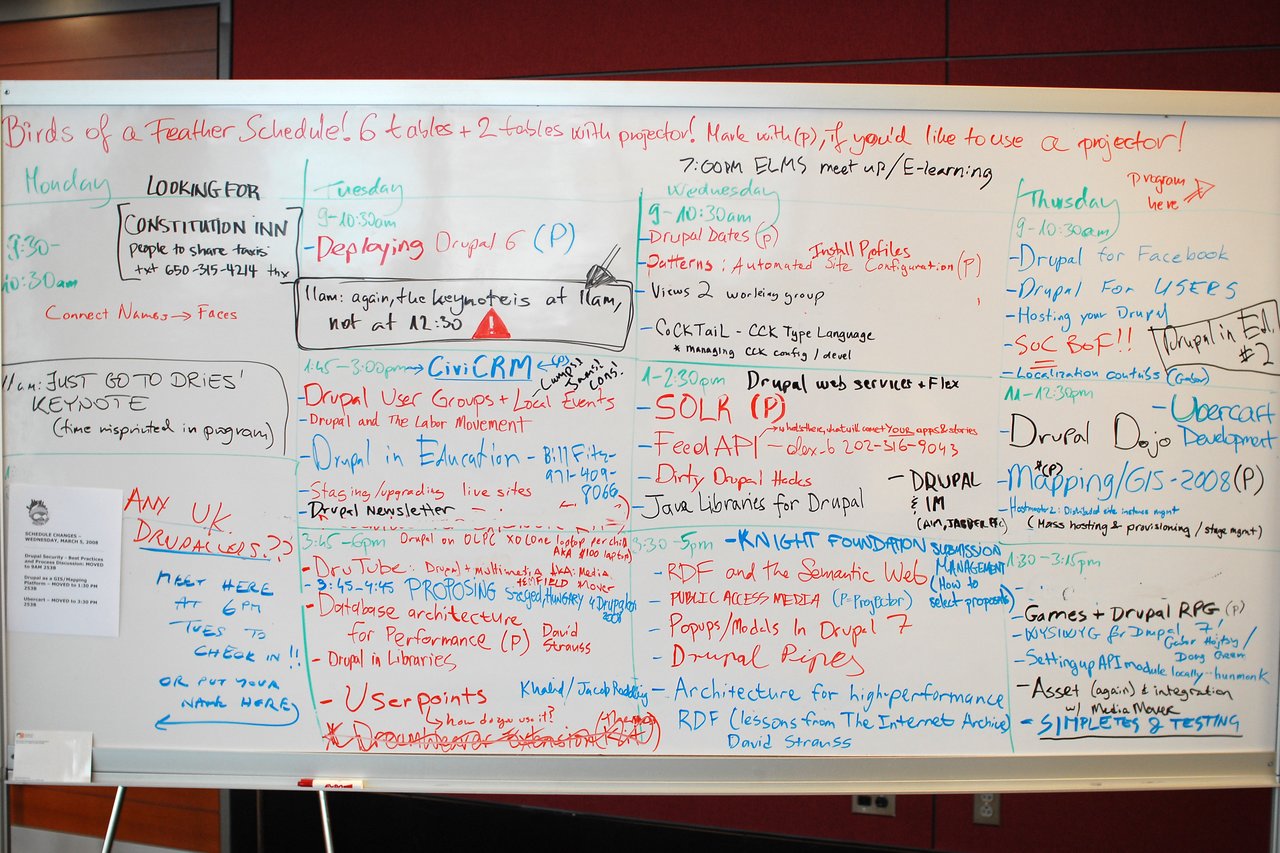 Birds of a Feather Schedule! 6 tables + 2 tables with projector! Mark with (P), if you'd like to use a projector!
7:00PM ELMS meet up/E-learning
Monday
LOOKING FOR
CONSTITUTION INN
people to share taxis
txt 650-315-4214 thx
9:30-
10:30am
Connect Names → Faces
11am: JUST GO TO DRIES'
KEYNOTE
(time misprinted in program)
SCHEDULE CHANGES –
WEDNESDAY, MARCH 5, 2008
Drupal Security – Best Practices
and Process Discussion: MOVED
to 9AM 253B
Drupal as a GIS/Mapping
Platform – MOVED to 1:30 PM
253B
Ubercart – MOVED to 3:30 PM
253B
ANY UK
DRUPALLERS??
MEET HERE
AT 6PM
TUES TO
CHECK IN!!
OR PUT YOUR
NAME HERE
Tuesday
9-10:30am
- Deploying Drupal 6 (P)
11am: again, the keynote is at 11am,
not at 12:30
1:45-3:00pm → CiviCRM ← (P)
- Drupal User Groups + Local Events
- Drupal and The Labor Movement
- Drupal in Education - Bill Fitz-
971-409-
8066
- Staging/upgrading live sites
- Drupal Newsletter
3:45-6pm Drupal on OLPC XO (one laptop per child
AKA $100 laptop)
- DruTube: Drupal + multimedia AKA: Media
Mover
- 3:45-4:45 PROPOSING Szeged, HUNGARY 4 Drupalcon
2008
- Database architecture
for Performance (P) David
Strauss
- Drupal in Libraries
- Userpoints
↳ how do you use it?
Wednesday
9-10:30am
- Drupal Dates (P)
Install Profiles
- Patterns: Automated Site Configuration (P)
- Views 2 working group
- CoCKTaiL - CCK Type Language
* managing CCK config / devel
1-2:30pm Drupal web services + Flex
- SOLR (P)
- Feed API - alex_b 202-316-9043
- Dirty Drupal Hacks
- Java Libraries for Drupal
- DRUPAL
& IM
(AIM, JABBER, etc)
3:30-5pm - KNIGHT FOUNDATION SUBMISSION
MANAGEMENT
(How to
select proposals)
- RDF and the Semantic Web
- PUBLIC ACCESS MEDIA (P=Projector)
- Popups/Modals In Drupal 7
- Drupal Pipes
- Architecture for high-performance
RDF (lessons from The Internet Archive)
David Strauss
Thursday
program
here
9-10:30am
- Drupal for Facebook
- Drupal FOR USERS
- Hosting your Drupal
- SOC BOF!!
Drupal in Ed.
#2
- Localization contribs (Gabor)
11-12:30pm
- Ubercart
Development
- Drupal Dojo
- Mapping/GIS-2008 (P)
(Mass hosting & provisioning / stage mgmt)
1:30-3:15pm
- Games + Drupal RPG (P)
- WYSIWYG for Drupal 7!
Gabor Hojtsy /
Doug Green
- Setting up API module locally - hunmonk
- Asset (again) & integration
w/ Media Mover
- SIMPLETES & TESTING